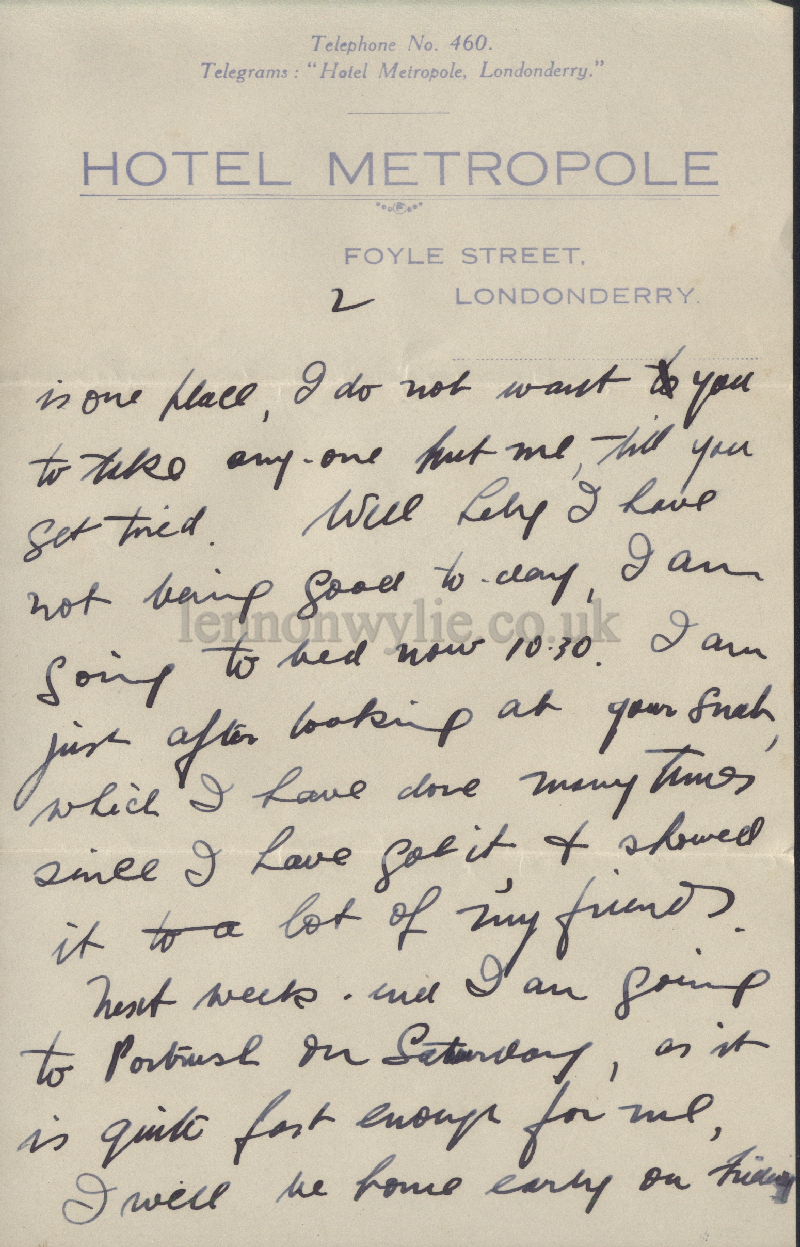 Telephone No. 460.
Telegrams: "Hotel Metropole, Londonderry."
HOTEL METROPOLE
FOYLE STREET,
2 LONDONDERRY.
is one place, I do not want to you
to take any-one but me, till you
get tired. Well I have
not being good to-day, I am
going to bed now 10.30. I am
just after looking at your snap,
which I have done many times
since I have got it, & showed
it to a lot of my friends.
Next week-end I am going
to Portrush on Saturday, as it
is quite fast enough for me,
I will be home early on Friday
lennonwylie.co.uk